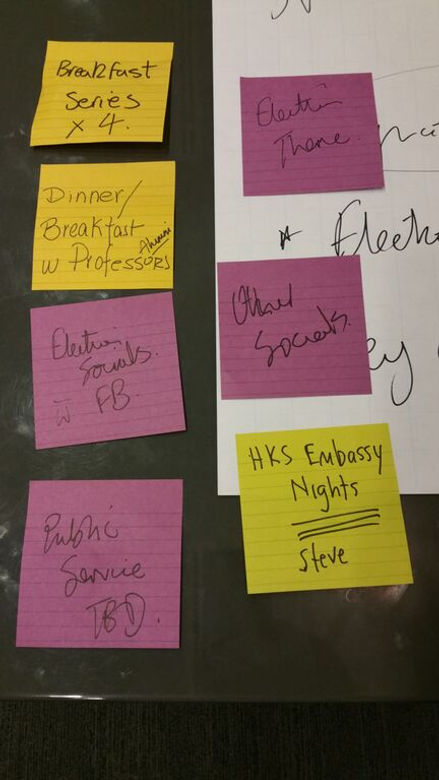 Breakfast
Series
x 4.
Dinner/
Breakfast
w Professors
Alumni
Election
Socials.
w FB.
Public
Service
TBD.
Election
Theme
Other
Socials.
HKS Embassy
Nights
Steve